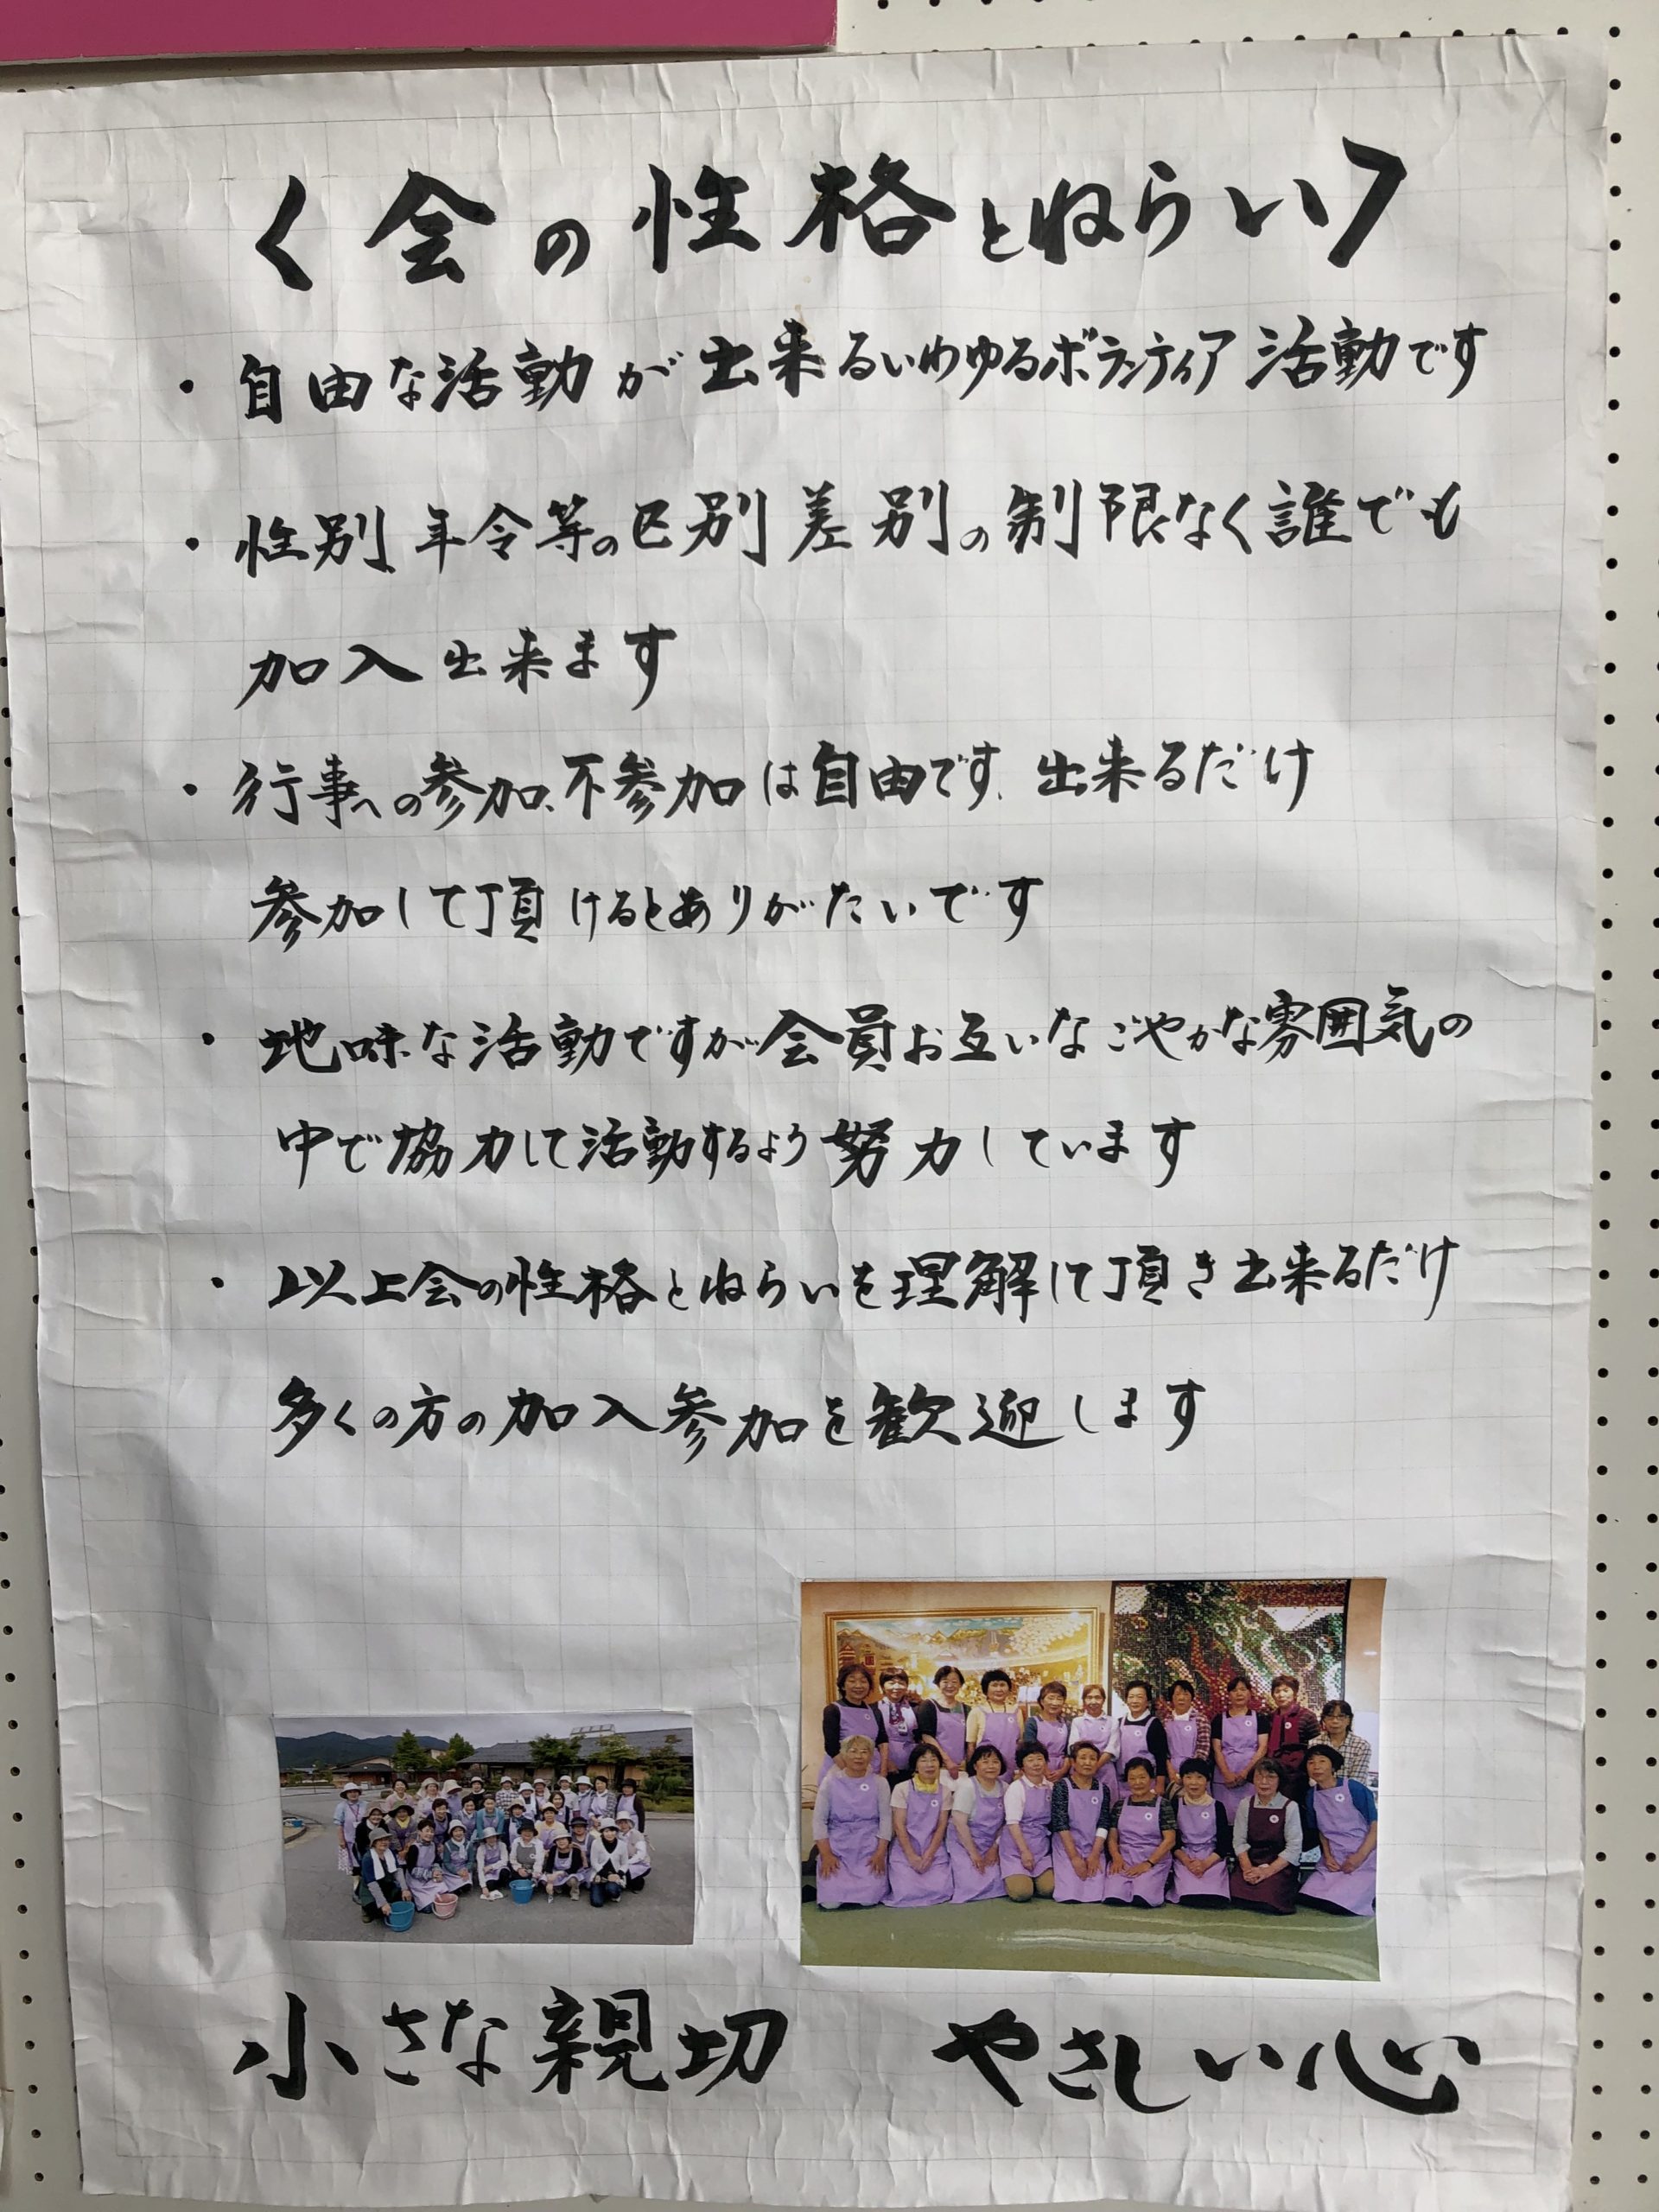 〈会の性格とねらい〉
・自由な活動が出来るいわゆるボランティア活動です
・性別、年令等の区別差別の制限なく誰でも
加入出来ます
・行事への参加、不参加は自由です、出来るだけ
参加して頂けるとありがたいです
・地味な活動ですが会員お互いなごやかな雰囲気の
中で協力して活動するよう努力しています
・以上会の性格とねらいを理解して頂き出来るだけ
多くの方の加入参加を歓迎します
小さな親切 やさしい心